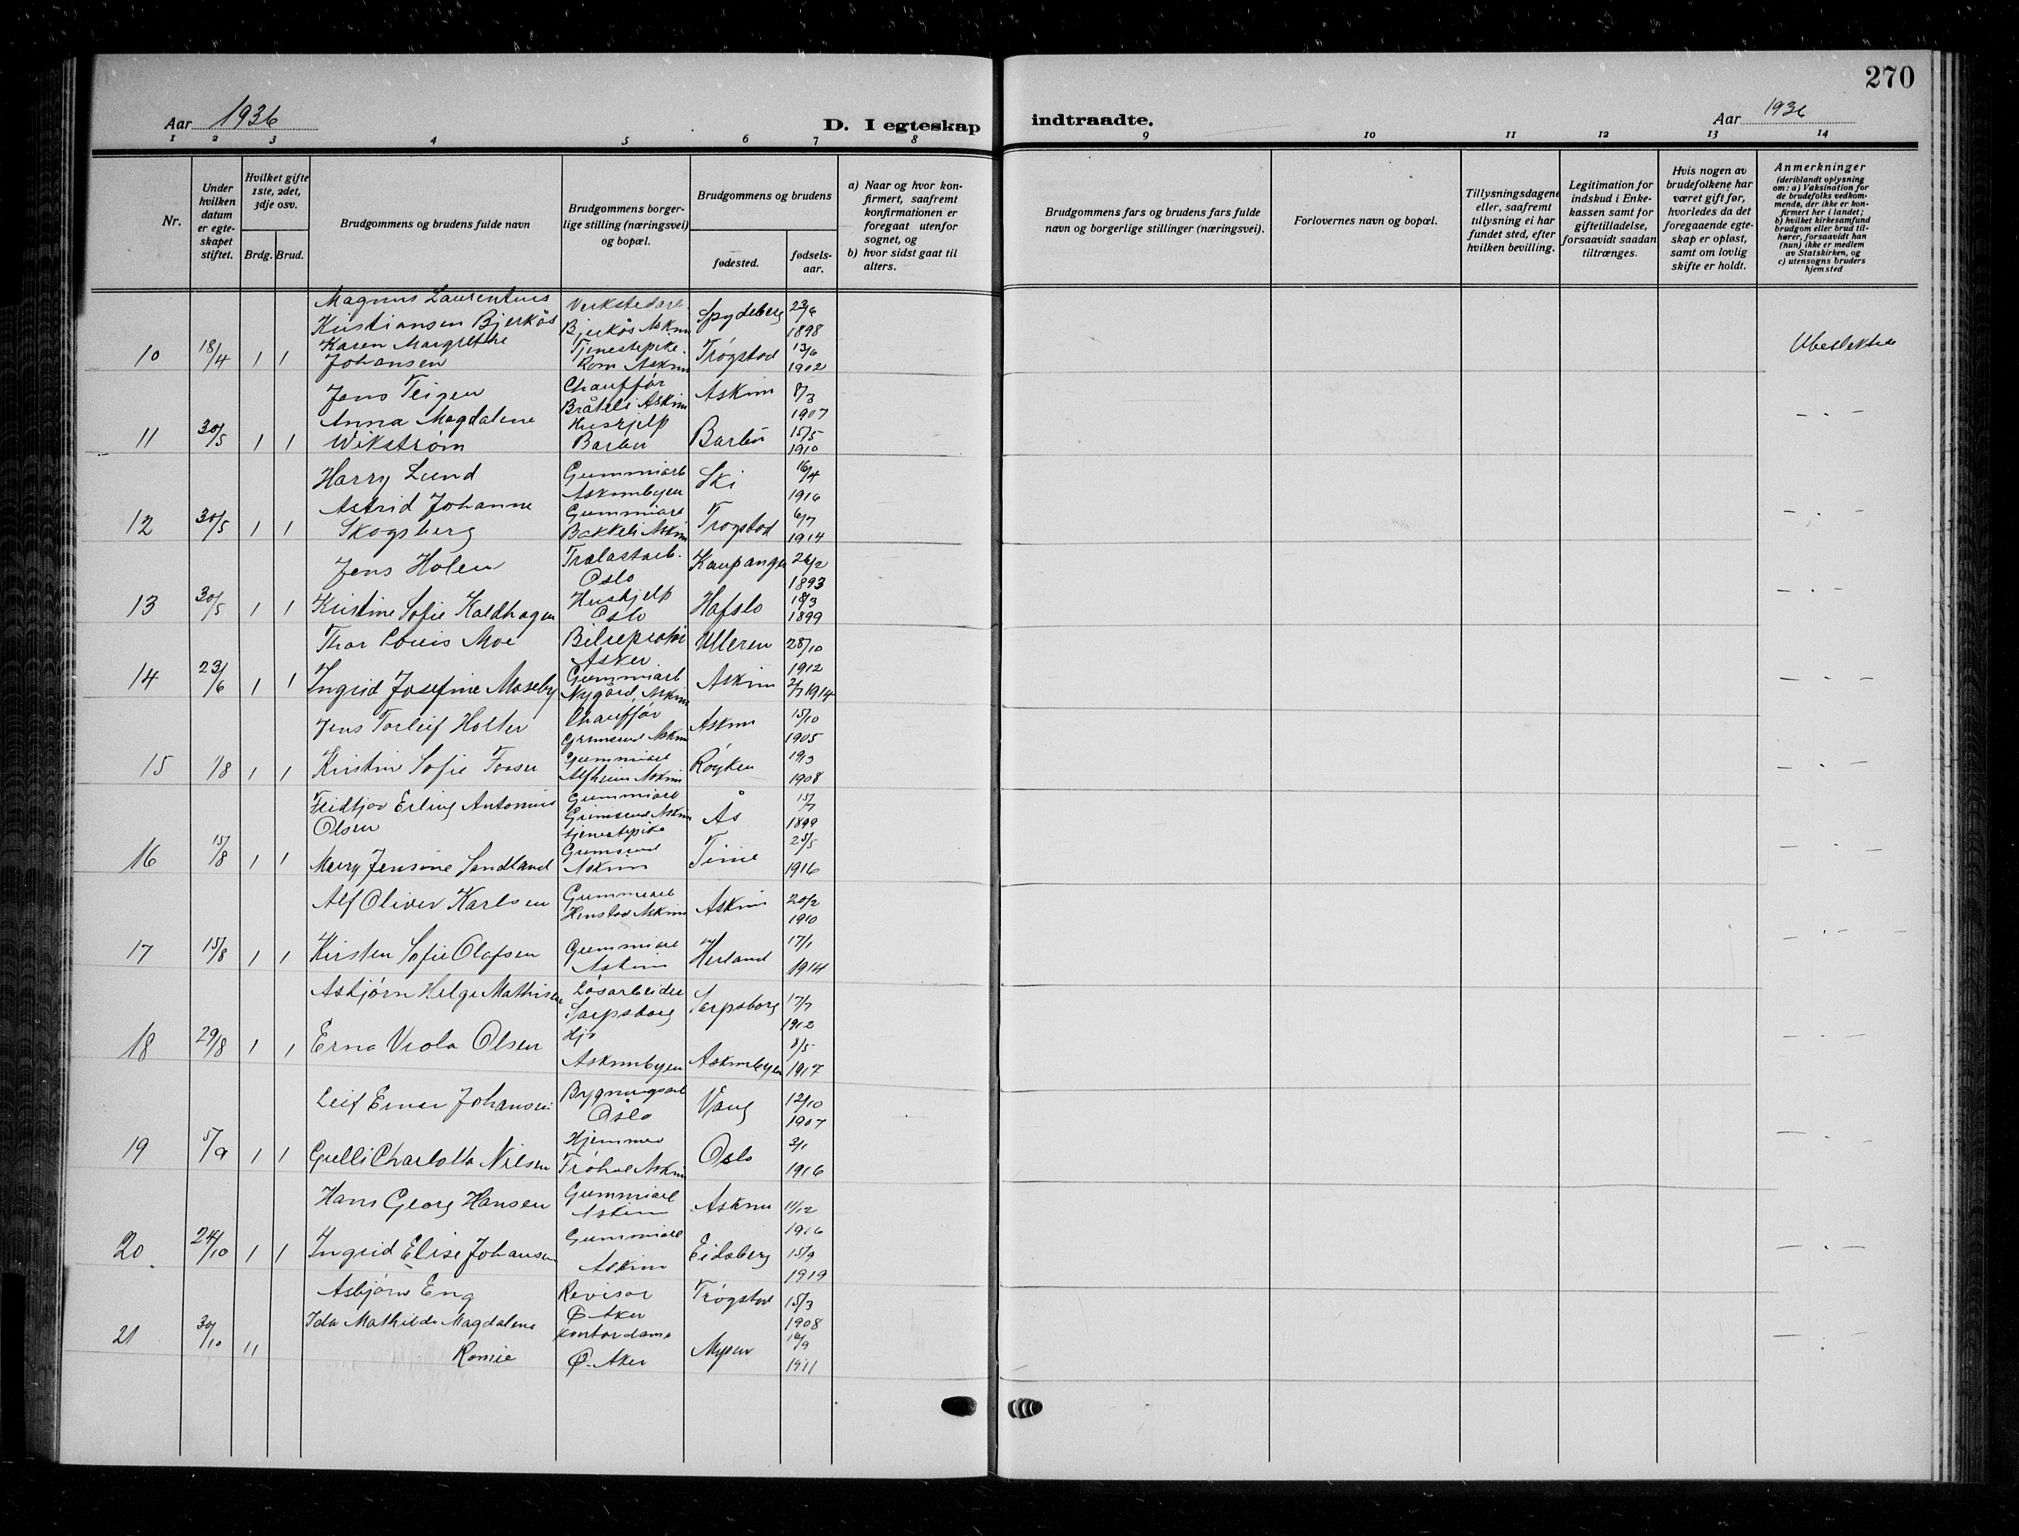 270
Aar 1936
D. I egteskap indtraadte.
Aar 1936
1 2 3 4 5 6 7 8 9 10 11 12 13 14
Nr.
Under hvilken datum er egteskapet stiftet.
Hvilket gifte 1ste, 2det, 3dje osv.
Brdg. Brud.
Brudgommens og brudens fulde navn
Brudgommens borgerlige stilling (næringsvei) og bopæl.
Brudgommens og brudens
fødested.
fødselsaar.
a) Naar og hvor konfirmert, saafremt konfirmationen er foregaat utenfor sognet, og
b) hvor sidst gaat til alters.
Brudgommens fars og brudens fars fulde navn og borgerlige stillinger (næringsvei).
Forlovernes navn og bopæl.
Tillysningsdagene eller, saafremt tillysning ei har fundet sted, efter hvilken bevilling.
Legitimation for indskud i Enkekassen samt for giftetilladelse, forsaavidt saadan tiltrænges.
Hvis nogen av brudefolkene har været gift før, hvorledes da det foregaaende egteskap er opløst, samt om lovlig skifte er holdt.
Anmerkninger (deriblandt oplysning om: a) Vaksination for de brudefolks vedkommende, der ikke er konfirmert her i landet; b) hvilket kirkesamfund brudgom eller brud tilhører, forsaavidt han (hun) ikke er medlem av Statskirken, og c) utensogns bruders hjemsted
Magnus Laurentius Verkstedarb. Spydeberg 23/6
Kristiansen Bjerkås Bjerkås Askim 1898
Karen Margrethe Tjenestepike Trøgstad 13/6
10 18/4 1 1 Johansen Rom Askim 1902 Ubeslektede
Jens Teigen Chauffør Askim 8/3
Bråteli Askim 1907
Anna Magdalene Hushjelp Barbu 15/5
11 30/5 1 1 Wikstrøm Barbu 1910 - . -
Harry Lund Gummiarb Ski 16/4
Askimbyen 1916
Astrid Johanne Gummiarb Trøgstad 6/7
12 30/5 1 1 Skogsberg Bakkeli Askim 1914 - . -
Jens Holen Trælastarb. Kaupanger 26/2
Oslo 1893
13 30/5 1 1 Kristine Sofie Kaldhagen Hushjelp Hafslo 18/3
Oslo 1899 - . -
Thor Louis Moe Bilreprtør Ulleren 28/10
Asker 1912
14 23/6 1 1 Ingrid Josefine Moseby Gummiarb Askim
Nygård, Askim 1914 - . -
Jens Torleif Holter Chauffør Askim 15/10
Grimsrud Askim 1905
15 1/8 1 1 Kristin Sofie Gummiarb Røyken 19/3
Alfheim Askim 1908 - . -
Fridtjov Erling Antonius Gummiarb Ås 15/7
Olsen Grimsrud Askim 1899
tjenestepike
16 15/8 1 1 Mary Jensine Sandland Grimsrud Time 25/5
Askim 1916 - . -
Alf Oliver Karlsen Gummiarb Askim 20/2
Henstad Askim 1910
17 15/8 1 1 Kirsten Sofie Olafsen Gummiarb Herland 17/1
Askim 1914 - . -
Asbjørn Helge Mathisen Løsarbeider Sarpsborg 17/7
Sarpsborg 1912
18 29/8 1 1 Erna Viola Olsen Hj. Askimbyen 8/5
Askimbyen 1917 - . -
Leif Einar Johansen Bygningsarb Vang 12/10
Oslo 1907
19 5/9 1 1 Gulli Charlotta Nilsen Hjemmev Oslo 3/1
Trøhol Askim 1916 - . -
Hans Georg Hansen Gummiarb Askim 11/12
Askim 1916
20 24/10 1 1 Ingrid Elise Johansen Gummiarb Eidsberg 15/9
Askim 1919 - . -
Asbjørn Eng Revisor Trøgstad 15/3
Ø Aker 1908
21 30/10 1 1 Ida Mathilde Magdalene Kontordame Mysen 16/9
Romie Ø. Aker 1911 - . -